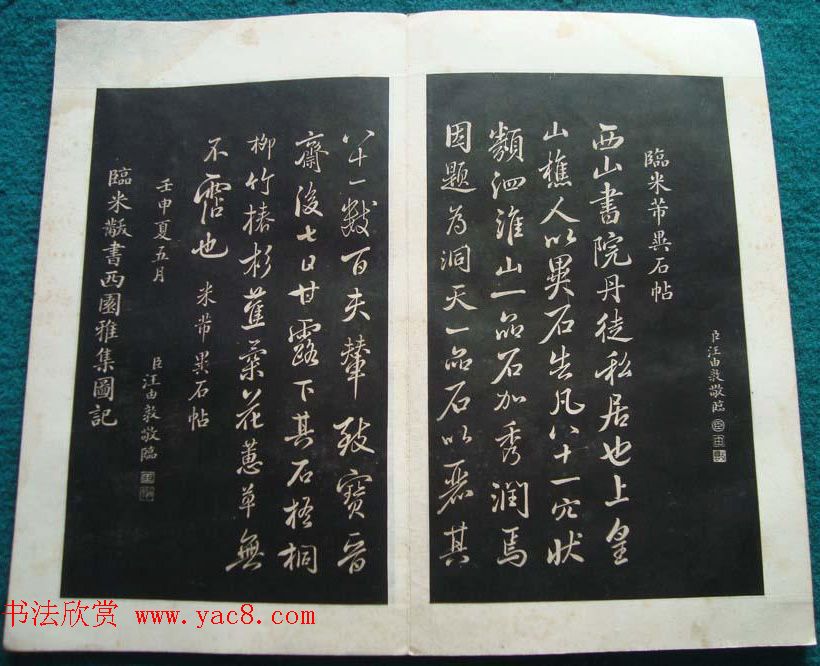 臣汪由敦敬臨
臨米芾異石帖
西山書院丹徒私居也上皇
山樵人以異石告凡八十一穴狀
類泗淮山一品石加秀潤焉
因題為洞天一品石以麗其
八十一數百夫輦致寶晉
齋後七日甘露下其石梧桐
柳竹椿杉蕉葉花蕙草無
不霑也 米芾異石帖
壬申夏五月
臣汪由敦敬臨
臨米黻書西園雅集圖記
书法欣赏 www.yac8.com